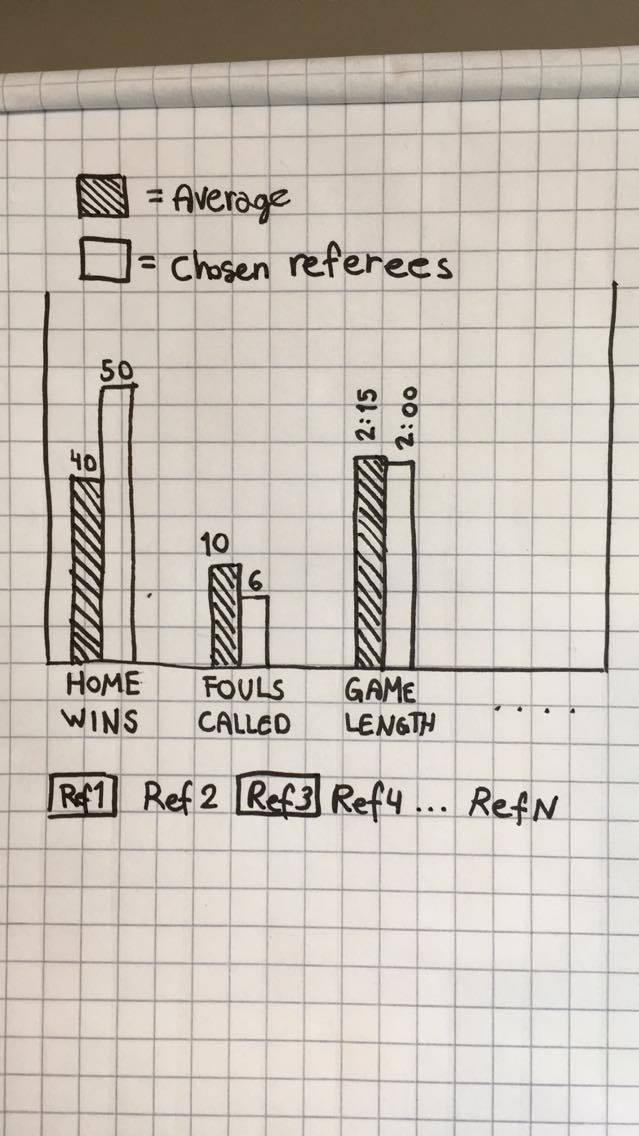 = Average
= Chosen referees
50
40
10
6
2:15
2:00
HOME WINS
FOULS CALLED
GAME LENGTH
....
Ref1 Ref2 Ref3 Ref4 ... RefN